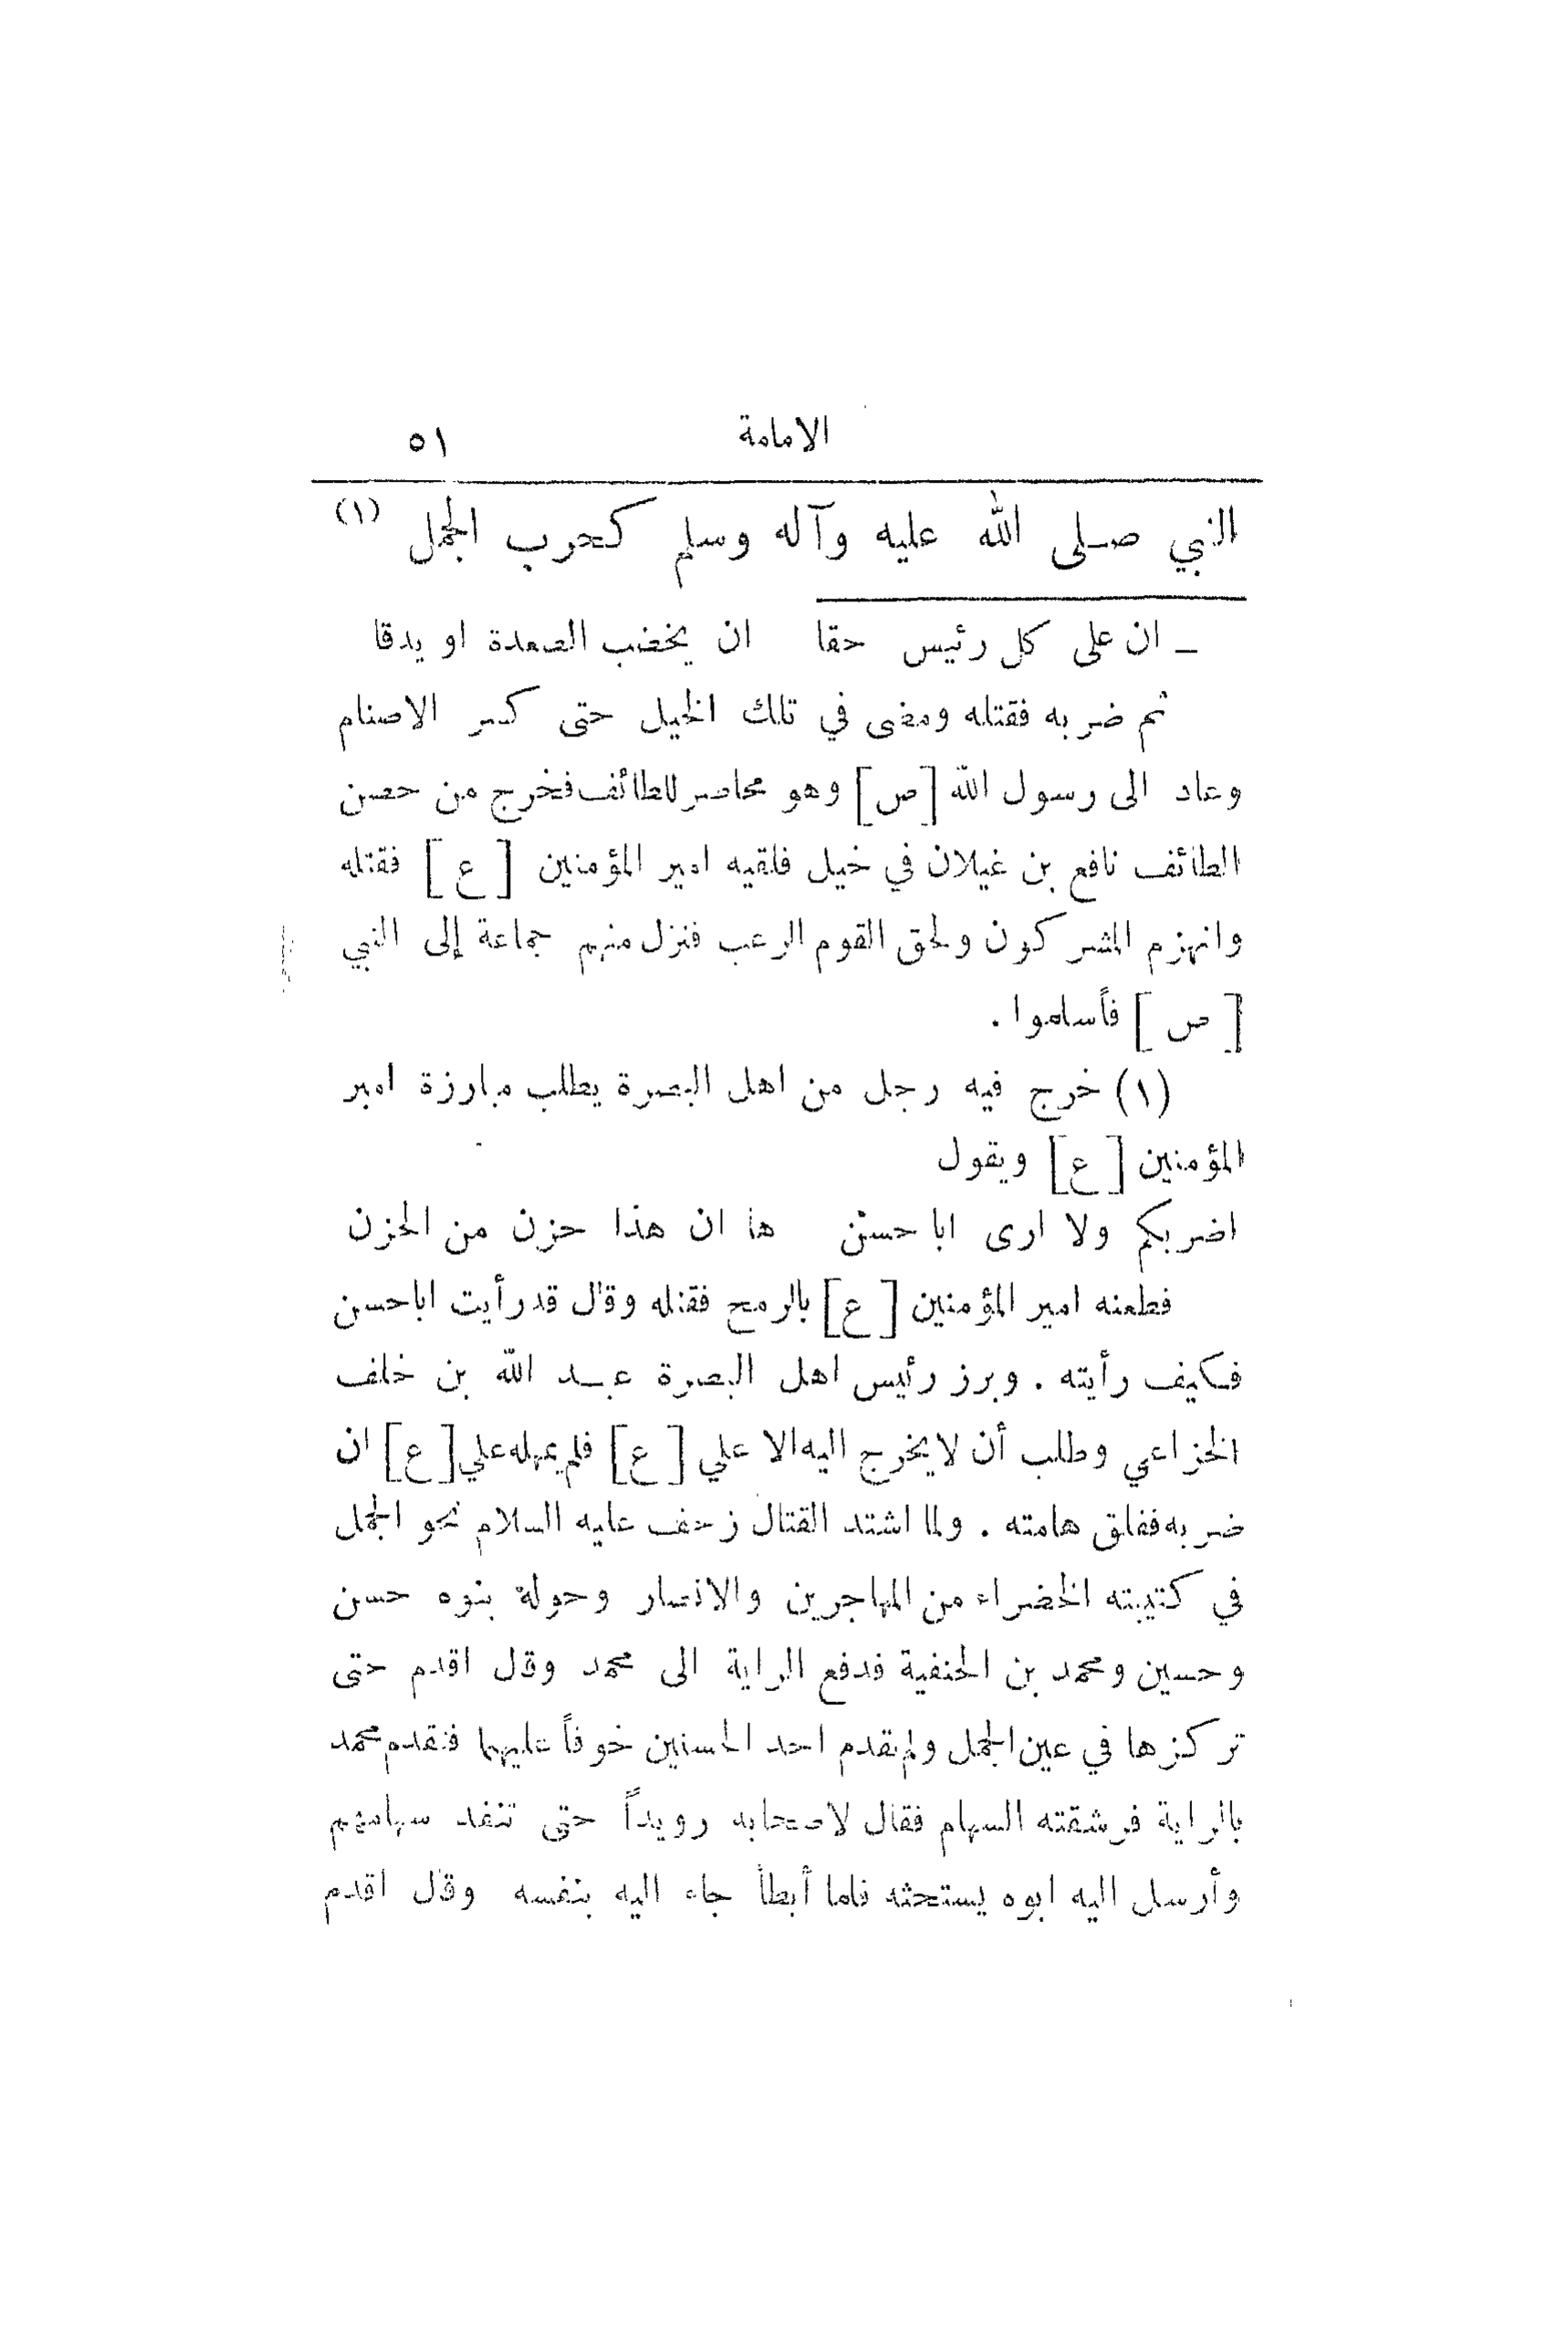 الامامة ٥١
النبي صلى الله عليه وآله وسلم كحرب الجمل (١)
ـ ان على كل رئيس حقا ان يخضب الصعدة او يدقا
ثم ضربه فقتله ومضى في تلك الخيل حتى كسر الاصنام
وعاد الى رسول الله [ص] وهو محاصر للطائف فخرج من حصن
الطائف نافع بن غيلان في خيل فلقيه امير المؤمنين [ع] فقتله
وانهزم المشركون ولحق القوم الرعب فنزل منهم جماعة إلى النبي
[ص] فأسلموا .
(١) خرج فيه رجل من اهل البصرة يطلب مبارزة امير
المؤمنين [ع] ويقول
اضربكم ولا ارى ابا حسن ها ان هذا حزن من الحزن
فطعنه امير المؤمنين [ع] بالرمح فقتله وقال قد رأيت اباحسن
فكيف رأيته . وبرز رئيس اهل البصرة عبد الله بن خلف
الخزاعي وطلب أن لا يخرج اليه الا علي [ع] فلم يمهله علي [ع] ان
ضربه ففلق هامته . ولما اشتد القتال زحف عليه السلام نحو الجمل
في كتيبته الخضراء من المهاجرين والانصار وحولة بنوه حسن
وحسين ومحمد بن الحنفية فدفع الراية الى محمد وقال اقدم حتى
تركزها في عين الجمل ولم يقدم احد الحسنين خوفاً عليهما فتقدم محمد
بالراية فرشقته السهام فقال لاصحابه رويداً حتى تنفد سهامهم
وأرسل اليه ابوه يستحثه فلما أبطأ جاء اليه بنفسه وقال اقدم